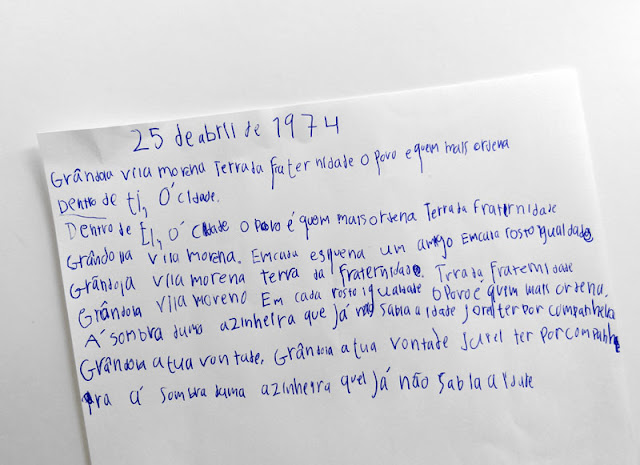 25 de abril de 1974
Grândola vila morena Terra da fraternidade o povo e quem mais ordena
Dentro de ti, Ó cidade.
Dentro de ti, Ó cidade o povo é quem mais ordena Terra da Fraternidade
Grândola vila morena. Em cada esquena um amigo Em cada rosto igualdade
Grândola vila morena terra da fraternidade. Terra da Fraternidade
Grândola vila moreno Em cada rosto igualdade o Povo é quem mais ordena.
Á sombra duma azinheira que já não sabia a idade jorei ter por companheira
Grândola a tua vontade, Grândola a tua vontade jurei ter por companhei
ra á sombra duma azinheira quel já não sabia a idade